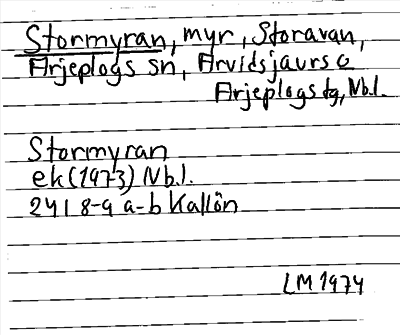 Stormyran, myr, Storavan,
Arjeplogs sn, Arvidsjaurs o
Arjeplogs tg, Nb.l.
Stormyran
ek (1973) Nb.l.
24I 8-9 a-b Kallön
LM 1974